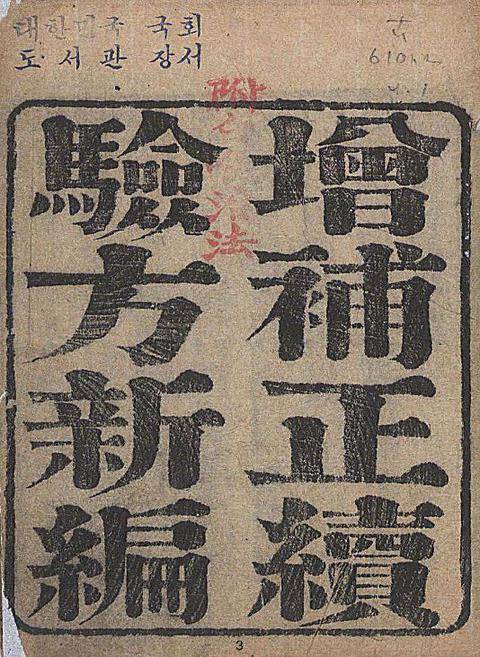 대한민국 국회
도서관 장서
古
610.2
v.1
增補正續
驗方新編
法
3